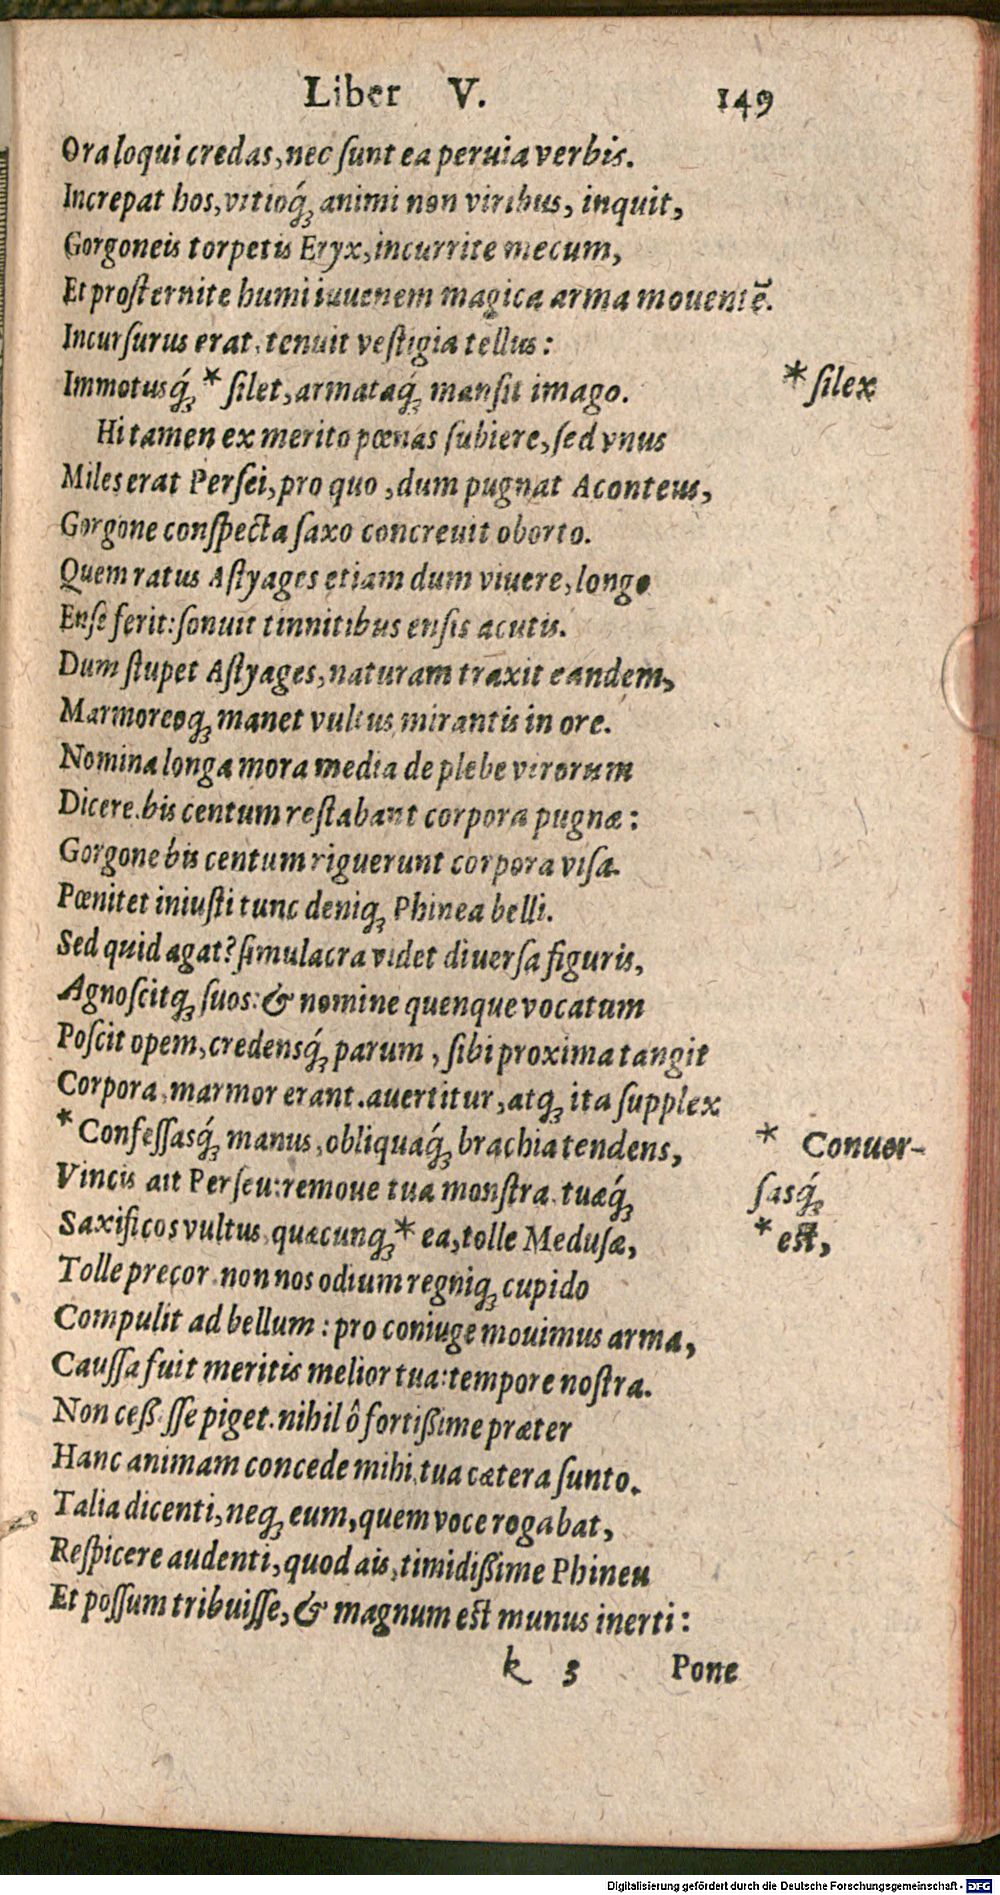 Liber V. 149
Ora loqui credas, nec ſunt ea peruia verbis.
Increpat hos, vitioq́ꝫ animi non viribus, inquit,
Gorgoneis torpetis Eryx, incurrite mecum,
Et proſternite humi iuuenem magica arma mouentē.
Incurſurus erat, tenuit veſtigia tellus:
Immotusq́ꝫ * ſilet, armataq́ꝫ manſit imago. * ſilex
Hi tamen ex merito pœnas ſubiere, ſed vnus
Miles erat Perſei, pro quo, dum pugnat Aconteus,
Gorgone conſpecta ſaxo concreuit oborto.
Quem ratus Aſtyages etiam dum viuere, longo
Enſe ferit: ſonuit tinnitibus enſis acutis.
Dum ſtupet Aſtyages, naturam traxit eandem,
Marmoreoqꝫ manet vultus mirantis in ore.
Nomina longa mora media de plebe virorum
Dicere. bis centum reſtabant corpora pugnæ:
Gorgone bis centum riguerunt corpora viſa.
Pœnitet iniuſti tunc deniqꝫ Phinea belli.
Sed quid agat? ſimulacra videt diuerſa figuris,
Agnoſcitqꝫ ſuos: & nomine quenque vocatum
Poſcit opem, credensq́ꝫ parum, ſibi proxima tangit
Corpora, marmor erant. auertitur, atqꝫ ita ſupplex
* Confeſſasq́ꝫ manus, obliquaq́ꝫ brachia tendens, * Conuer-
Vincis ait Perſeu: remoue tua monſtra. tuæq́ꝫ ſasq́ꝫ
Saxificos vultus, quæcunqꝫ * ea, tolle Meduſæ, * eſt,
Tolle precor. non nos odium regniqꝫ cupido
Compulit ad bellum: pro coniuge mouimus arma,
Cauſſa fuit meritis melior tua: tempore noſtra.
Non ceß ſſe piget. nihil ô fortißime præter
Hanc animam concede mihi, tua cætera ſunto.
Talia dicenti, neqꝫ eum, quem voce rogabat,
Reſpicere audenti, quod ais, timidißime Phineu
Et poſſum tribuiſſe, & magnum eſt munus inerti:
k 3 Pone
Digitalisierung gefördert durch die Deutsche Forschungsgemeinschaft - DFG